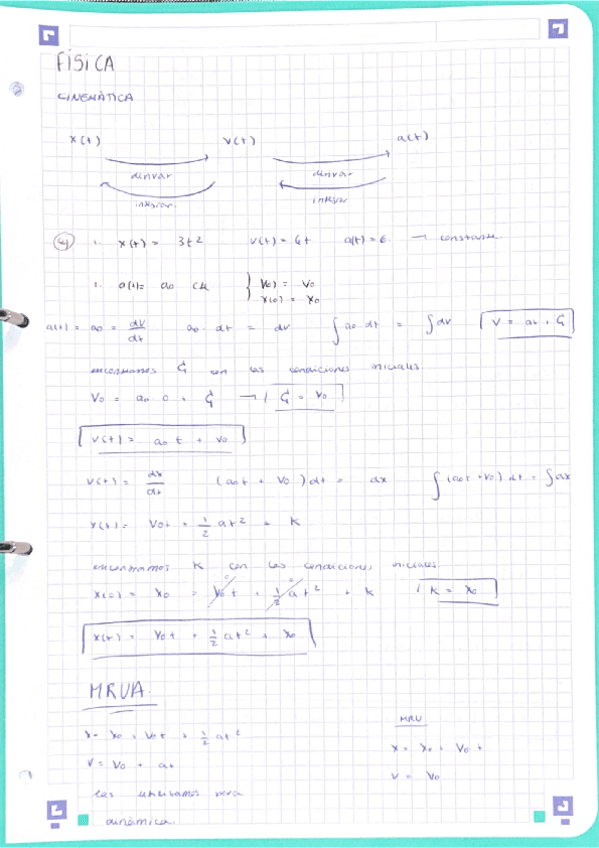 FÍSICA
CINEMÁTICA
x(t) v(t) a(t)
derivar derivar
integrar integrar
ej 1. x(t) = 3t² v(t) = 6t a(t) = 6 → constante
2. a(t) = a₀ cte { v(0) = v₀
x(0) = x₀
a(t) = a₀ = dv/dt a₀ · dt = dv ∫ a₀ dt = ∫ dv V = at + C₁
encontramos C₁ con las condiciones iniciales.
V₀ = a₀ · 0 + C₁ → C₁ = V₀
v(t) = a₀ t + v₀
v(t) = dx/dt (a₀t + V₀) dt = dx ∫ (a₀t + v₀) dt = ∫ dx
x(t) = V₀t + 1/2 at² + K
encontramos K con las condiciones iniciales.
x(0) = x₀ = V₀ t + 1/2 at² + K K = X₀
x(t) = V₀t + 1/2 at² + x₀
MRUA
x = x₀ + V₀t + 1/2 at²
V = V₀ + at
las utilizamos para
dinámica.
MRU
x = x₀ + V₀ t
v = V₀